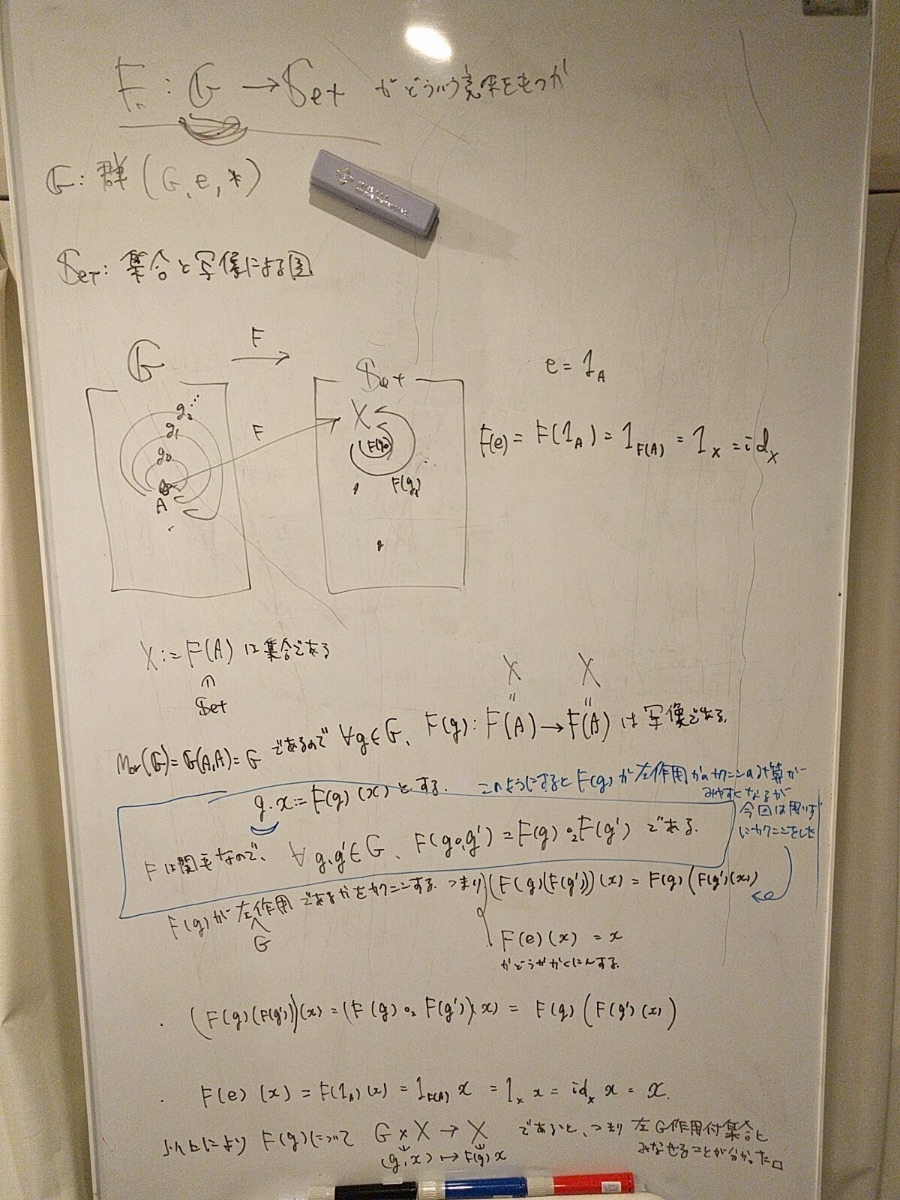 F : G → Set がどういう意味をもつか
G: 群 (G, e, *)
Set: 集合と写像による圏
G
F
Set
g₂ ...
g₁
g₀
A
F
X
F(g₀)
F(g₁)
e = 1_A
F(e) = F(1_A) = 1_F(A) = 1_X = id_X
X := F(A) は集合である
∩
Set
X X
" "
Mor(G) = G(A,A) = G であるので ∀g∈G、 F(g): F(A) → F(A) は写像である。
g.x := F(g)(x) とする。
このようにすると F(g) が左作用かのカクニンの計算が
みやすくなるが
今回は用いず
にカクニンをした
Fは関手なので、 ∀g,g'∈G、 F(g∘₁g') = F(g)∘₂F(g') である。
F(g)が左作用であるかをカクニンする。つまり (F(g)(F(g')))(x) = F(g)(F(g')(x))
G
F(e)(x) = x
がどうかかくにんする。
・ (F(g)(F(g')))(x) = (F(g)∘₂F(g'))(x) = F(g)(F(g')(x))
・ F(e)(x) = F(1_A)(x) = 1_F(A) x = 1_X x = id_X x = x.
以上により F(g)について G×X → X であると、つまり 左G作用付集合と
(g,x) ↦ F(g)x
みなせることが分かった □